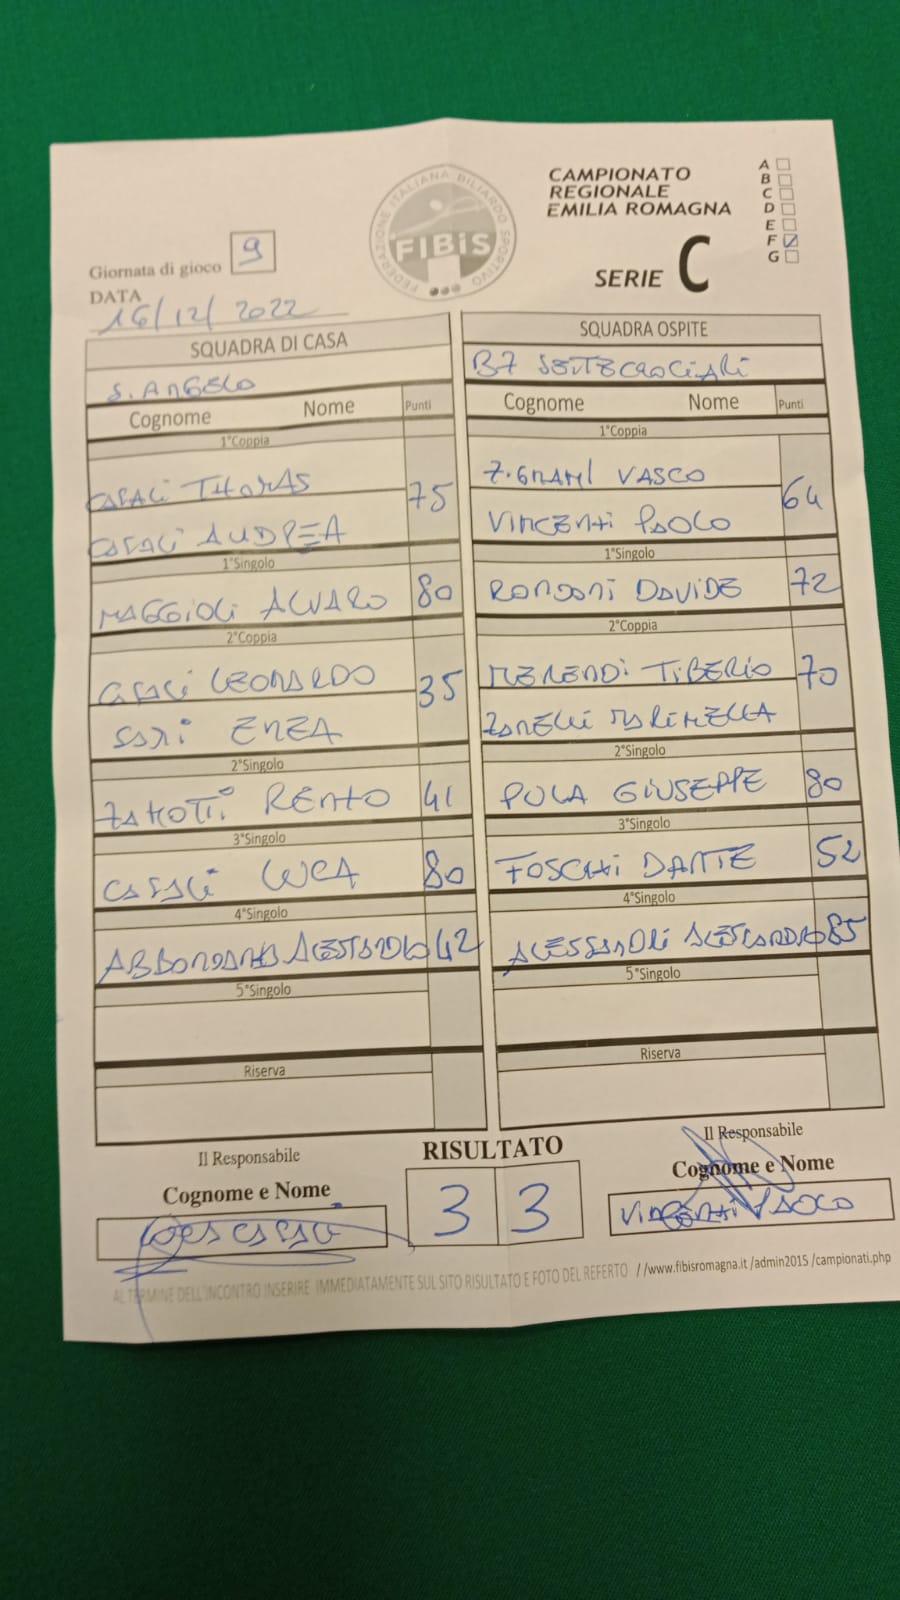 FEDERAZIONE ITALIANA BILIARDO SPORTIVO
FIBiS
CAMPIONATO
REGIONALE
EMILIA ROMAGNA
SERIE C
A
B
C
D
E
F
G
Giornata di gioco 9
DATA
16/12/2022
SQUADRA DI CASA
S. ANGELO
Cognome Nome Punti
1°Coppia
CASALI THOMAS
75
CASALI ANDREA
1°Singolo
MAGGIOLI ALVARO 80
2°Coppia
CASALI LEONARDO
35
ENEA
2°Singolo
ZANOTTI RENATO 41
3°Singolo
CASALI LUCA 80
4°Singolo
ALESSANDRO 42
5°Singolo
Riserva
SQUADRA OSPITE
B7 SETTECROCIARI
Cognome Nome Punti
1°Coppia
VASCO
64
VINCENTI PAOLO
1°Singolo
RONDONI DAVIDE 72
2°Coppia
MERENDI TIBERIO
70
ZANELLI MARINELLA
2°Singolo
POLA GIUSEPPE 80
3°Singolo
FOSCHI DANTE 52
4°Singolo
ALESSANDRI ALESSANDRO 85
5°Singolo
Riserva
Il Responsabile
Cognome e Nome
CASALI
RISULTATO
3 3
Il Responsabile
Cognome e Nome
VINCENTI PAOLO
AL TERMINE DELL'INCONTRO INSERIRE IMMEDIATAMENTE SUL SITO RISULTATO E FOTO DEL REFERTO //www.fibisromagna.it /admin2015 /campionati.php